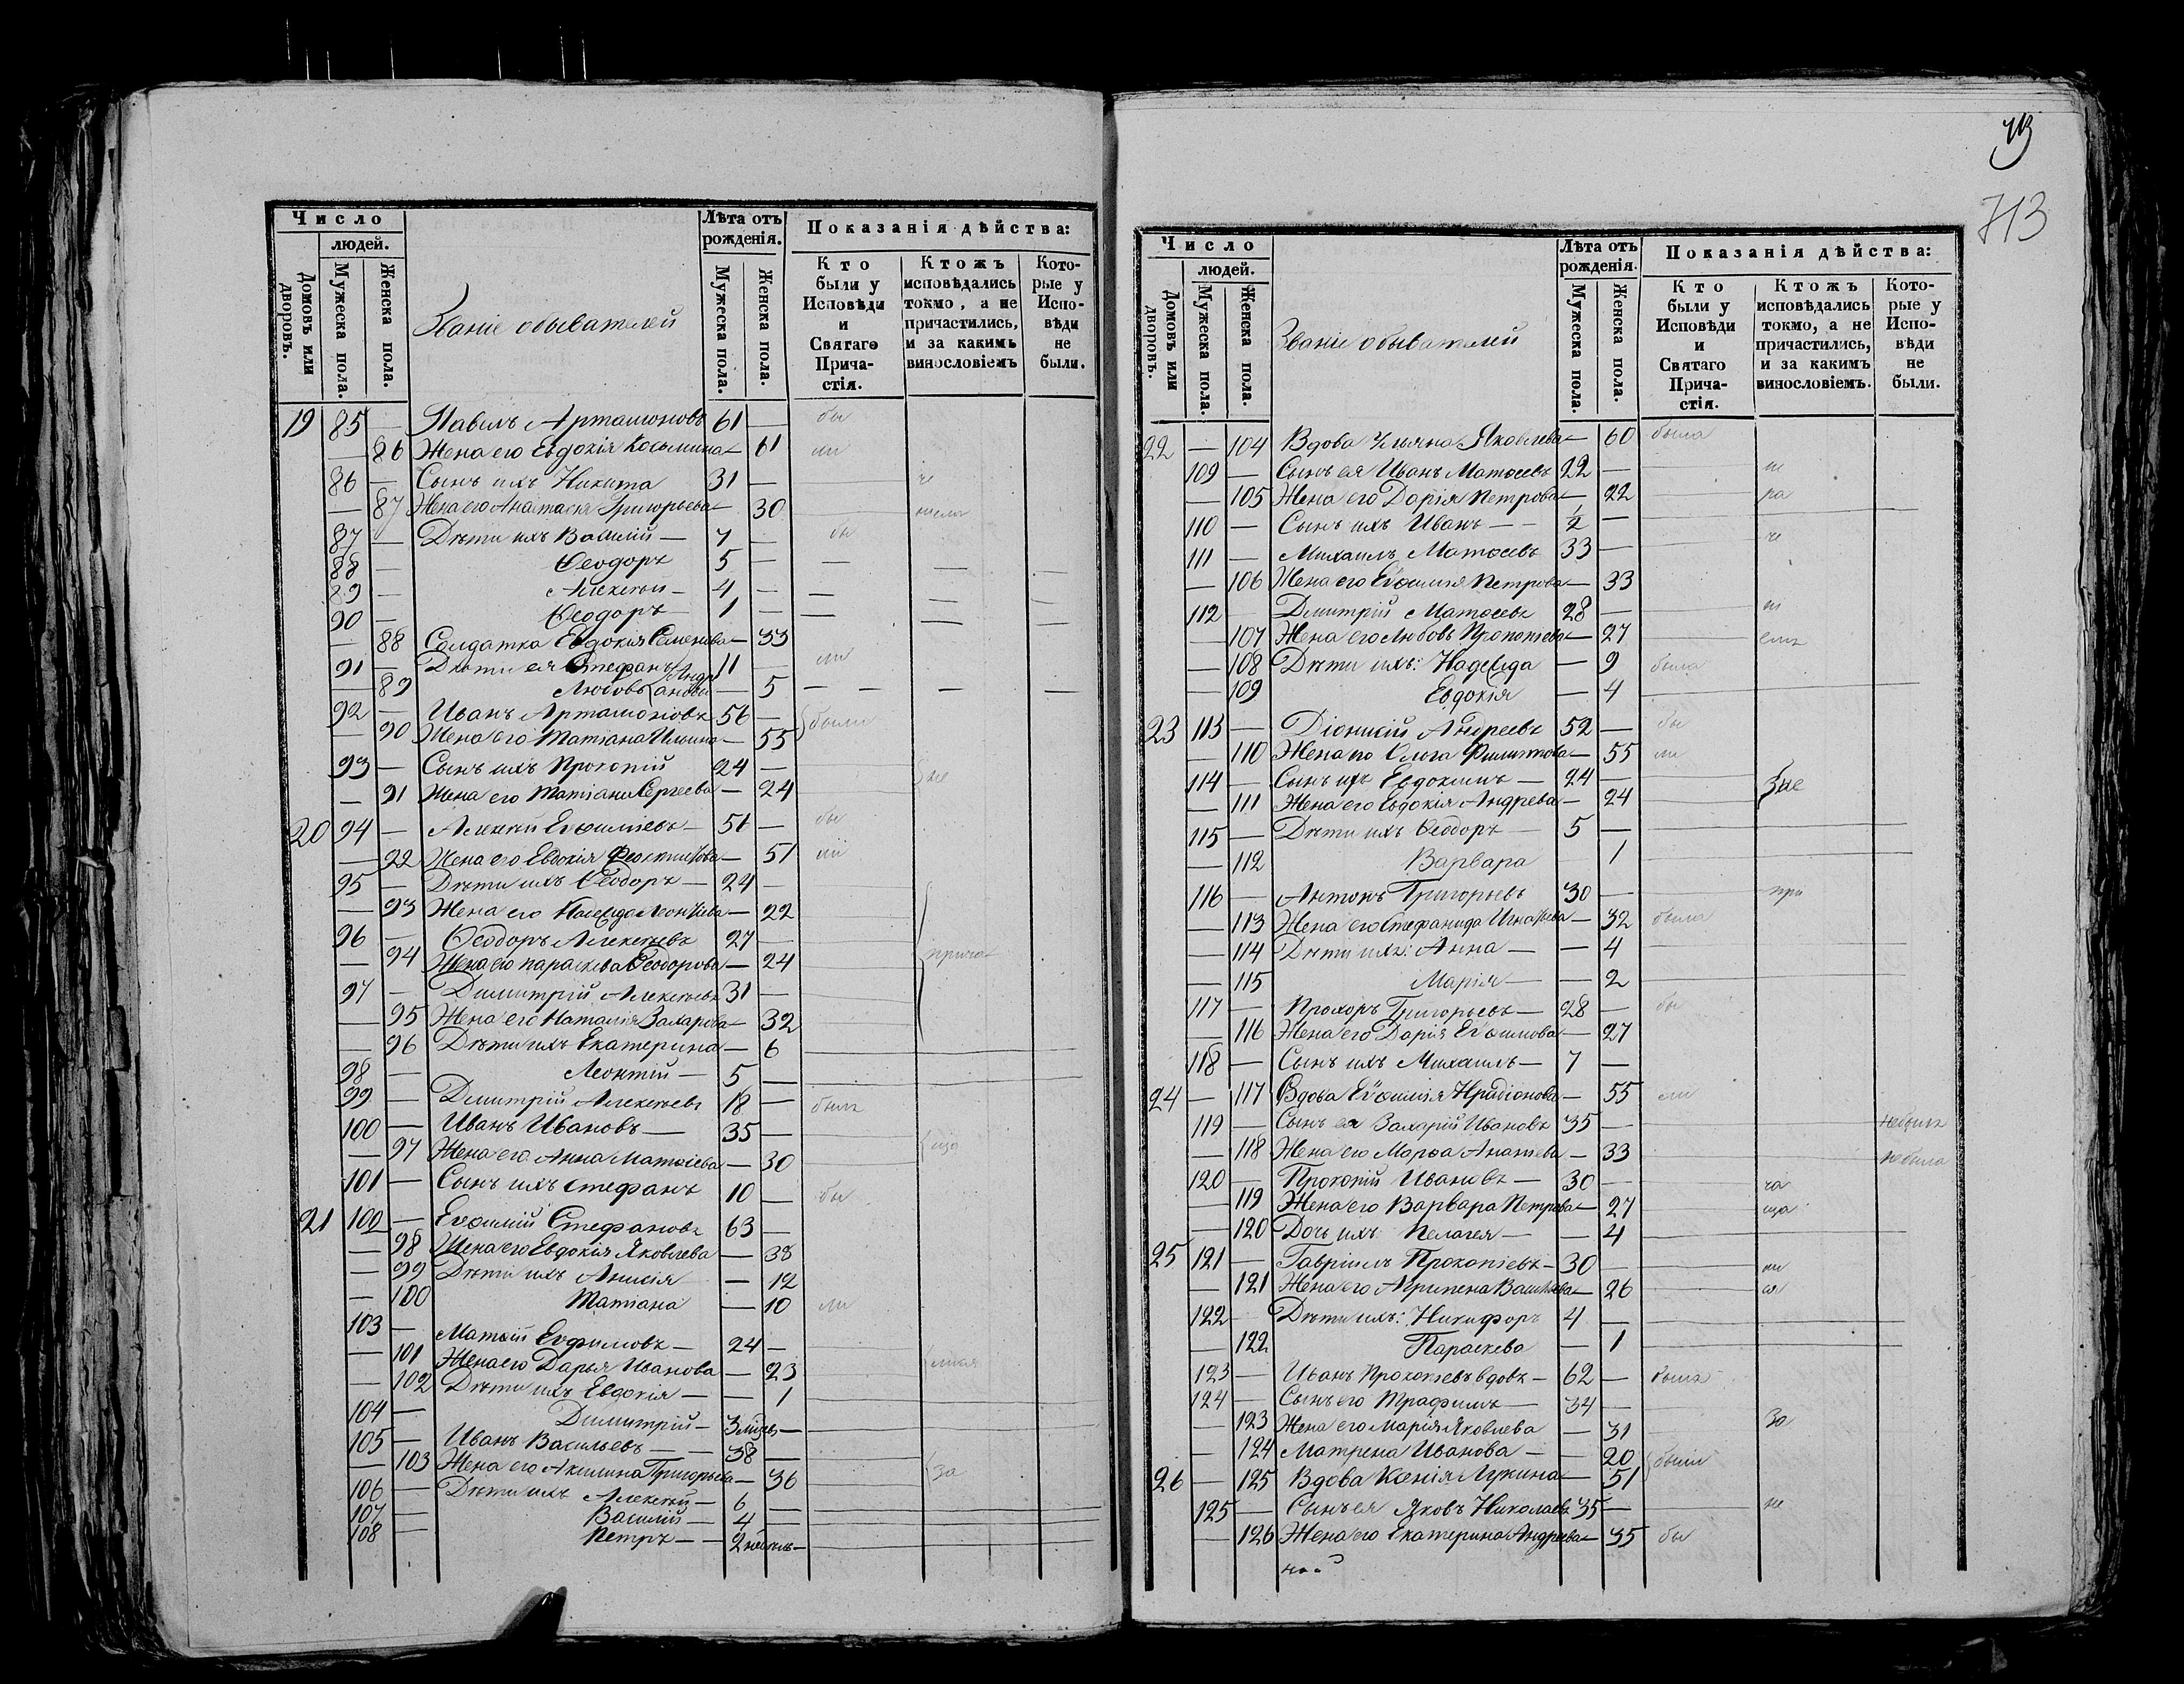 Число
людей.
Домовъ или дворовъ.
Мужеска пола.
Женска пола.
Званіе обывателей
Лѣта отъ рожденія.
Мужеска пола.
Женска пола.
Показанія дѣйства:
Кто были у Исповѣди и Святаго Причастія.
Ктожъ исповѣдались токмо, а не причастились, и за какимъ винословіемъ
Которые у Исповѣди не были.
19 85 — Павелъ Артамоновъ 61 — бы
— 86 Жена его Евдокія Косьмина — 61 ли
86 — Сынъ ихъ Никита 31 —
— 87 Жена его Анастасія Григорьева — 30
87 — Дѣти ихъ Василій — 7 — бы
88 — Ѳеодоръ 5 — — — —
89 — Алексѣй — 4 — — — —
90 — Ѳеодоръ 1 — — — —
— 88 Солдатка Евдокія Семенова — 33
91 — Дѣти ея Стефанъ 11 — ли
— 89 Любовь — 5 — — —
92 — Иванъ Артамоновъ 56 — были
— 90 Жена его Татіана Ильина — 55
93 — Сынъ ихъ Прокопій 24 —
— 91 Жена его Татіана Сергеева — 24 не
20 94 — Алексѣй Евѳиміевъ — 51 — бы
— 92 Жена его Евдокія Феоктистова — 51 ли
95 — Дѣти ихъ Ѳеодоръ — 24 —
— 93 Жена его Надежда Леонтіева — 22
96 — Ѳеодоръ Алексѣевъ 27 —
— 94 Жена его Параскева Ѳеодорова — 24 прича
97 — Димитрій Алексѣевъ 31 —
— 95 Жена его Наталія Захарова — 32
— 96 Дѣти ихъ Екатерина — 6
98 — Леонтій — 5 —
99 — Димитрій Алексѣевъ 18 — былъ
100 — Иванъ Ивановъ — 35 —
— 97 Жена его Анна Матѳіева — 30
101 — Сынъ ихъ Стефанъ 10 — бы
21 102 — Евѳимій Стефановъ 63 —
— 98 Жена его Евдокія Яковлева — 38
— 99 Дѣти ихъ Анисія — 12
— 100 Татіана — 10 ли
103 — Матѳій Евфимовъ — 24 —
— 101 Жена его Дарья Иванова — 23
— 102 Дѣти ихъ Евдокія — — 1
104 — Димитрій — 3 мѣсяц —
105 — Иванъ Васильевъ — — 38 —
— 103 Жена его Акилина Григорьева — 36 за
106 — Дѣти ихъ Алексѣй — 6 —
107 — Василій — 4 —
108 — Петръ — — 2 недѣль —
713
713
Число
людей.
Домовъ или дворовъ.
Мужеска пола.
Женска пола.
Званіе обывателей
Лѣта отъ рожденія.
Мужеска пола.
Женска пола.
Показанія дѣйства:
Кто были у Исповѣди и Святаго Причастія.
Ктожъ исповѣдались токмо, а не причастились, и за какимъ винословіемъ.
Которые у Исповѣди не были.
22 — 104 Вдова Ульяна Яковлева — 60 была
109 — Сынъ ея Иванъ Матѳеевъ 22 —
— 105 Жена его Дарія Петрова — 22 ра
110 — Сынъ ихъ Иванъ — — 1/2 —
111 — Михаилъ Матѳеевъ 33 —
— 106 Жена его Евѳимія Петрова — 33
112 — Димитрій Матѳеевъ 28 —
— 107 Жена его Любовь Прокопіева — 27
— 108 Дѣти ихъ: Надежда — 9 была
— 109 Евдокія — 4
23 113 — Діонисій Андреевъ 52 — бы
— 110 Жена его Ольга Филиппова — 55 ли
114 — Сынъ ихъ Евдокимъ — 24 —
— 111 Жена его Евдокія Андреева — 24 не
115 — Дѣти ихъ Ѳеодоръ — 5 —
— 112 Варвара 1
116 — Антонъ Григорьевъ 30 — при
— 113 Жена его Стефанида Игнатьева — 32 была
— 114 Дѣти ихъ: Анна — — 4
— 115 Марія — — 2
117 — Прохоръ Григорьевъ — 28 — бы
— 116 Жена его Дарія Евѳимова — 27
118 — Сынъ ихъ Михаилъ — 7 —
24 — 117 Вдова Евѳимія Иродіонова — 55 ли
119 — Сынъ ея Захарій Ивановъ 35 — небылъ
— 118 Жена его Марѳа Ананіева — 33 небыла
120 — Прокопій Ивановъ — 30 — ча
— 119 Жена его Варвара Петрова — 27
— 120 Дочь ихъ Пелагея — — 4
25 121 — Гавріилъ Прокопіевъ — 30 —
— 121 Жена его Агрипена Васильева — 26
122 — Дѣти ихъ: Никифоръ 4 —
— 122 Параскева — 1
123 — Иванъ Прокопіевъ вдовъ — 62 — былъ
124 — Сынъ его Трафимъ — 34 —
— 123 Жена его Марія Яковлева — 31 За
— 124 Матрена Иванова — — 20 были
26 — 125 Вдова Ксенія Лукина — 51
125 — Сынъ ея Яковъ Николаевъ 35 — не
— 126 Жена его Екатерина Андреева — 35 бы